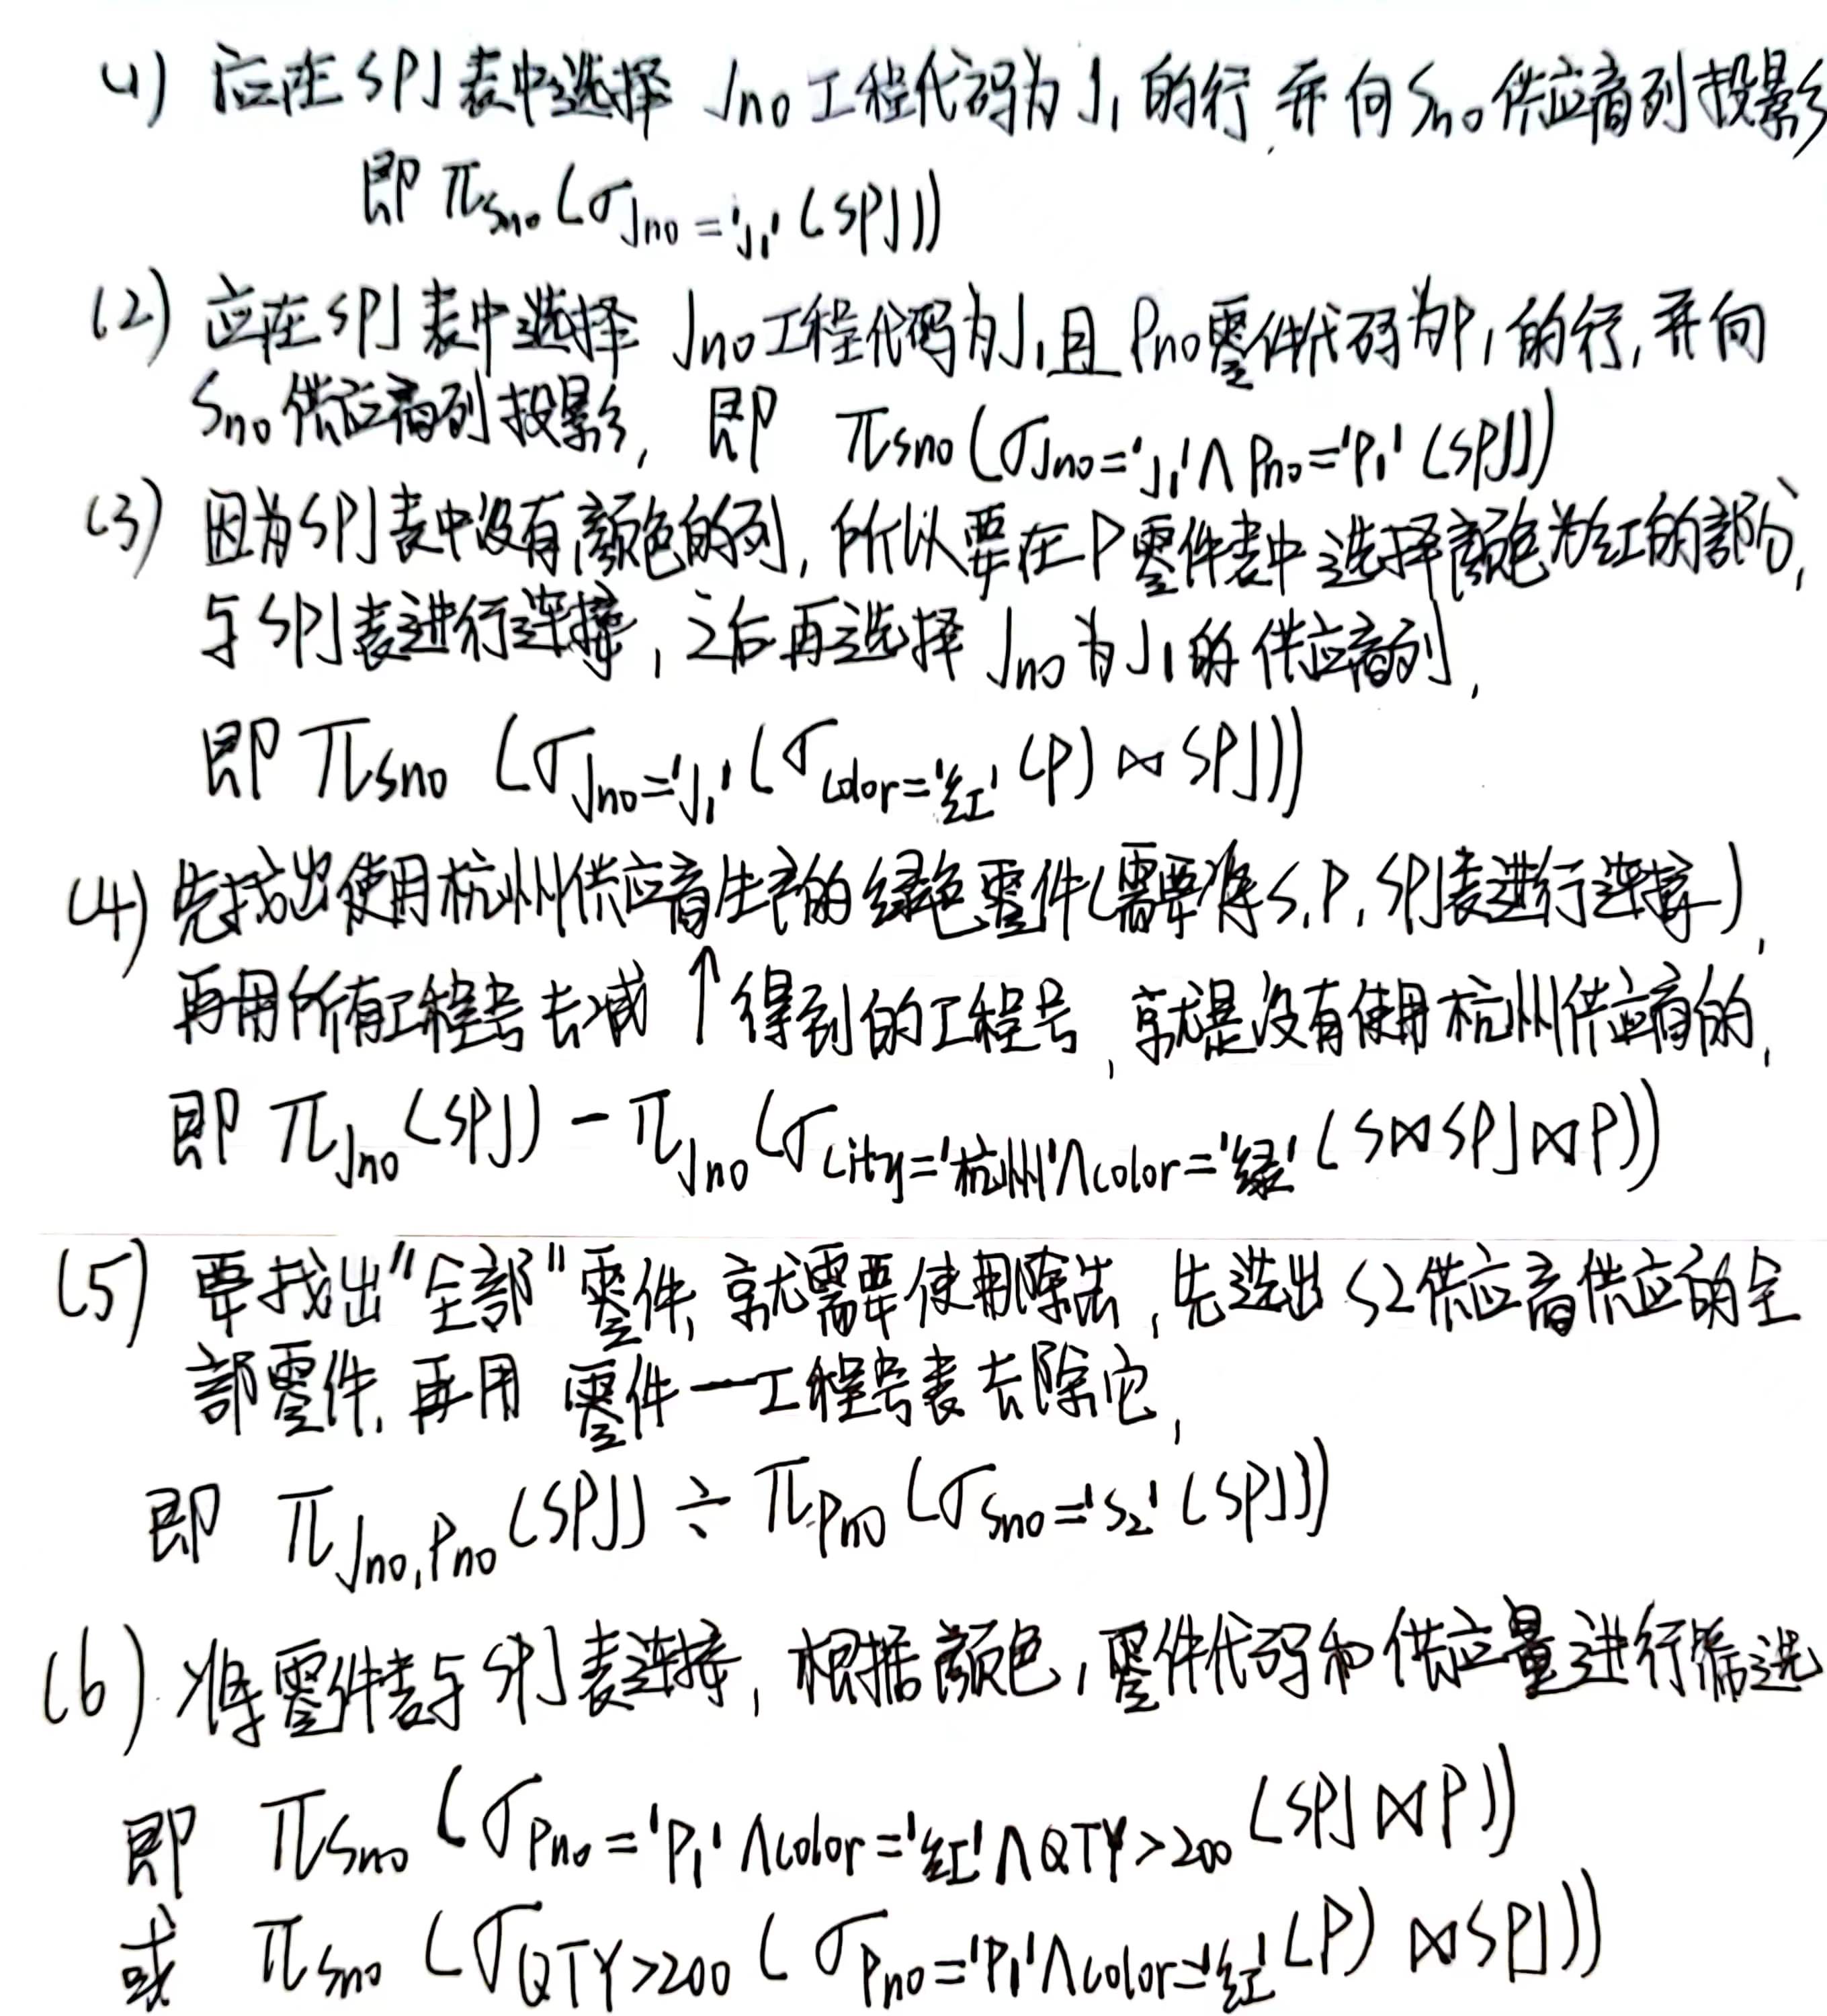 (1) 应在SPJ表中选择 Jno工程代码为J₁的行,并向Sno供应商列投影
即 π_Sno(σ_Jno='J₁'(SPJ))
(2) 应在SPJ表中选择 Jno工程代码为J₁且Pno零件代码为P₁的行,并向
Sno供应商列投影, 即 π_Sno(σ_Jno='J₁'∧Pno='P₁'(SPJ))
(3) 因为SPJ表中没有颜色的列,所以要在P零件表中选择颜色为红的部分,
与SPJ表进行连接,之后再选择Jno为J₁的供应商列,
即 π_Sno(σ_Jno='J₁'(σ_color='红'(P)⋈SPJ))
(4) 先找出使用杭州供应商生产的绿色零件(需要将S,P,SPJ表进行连接),
再用所有工程号去减↑得到的工程号,就是没有使用杭州供应商的,
即 π_Jno(SPJ)-π_Jno(σ_City='杭州'∧color='绿'(S⋈SPJ⋈P))
(5) 要找出"全部"零件,就需要使用除法,先选出S2供应商供应的全
部零件,再用 零件一工程号表去除它,
即 π_Jno,Pno(SPJ)÷π_Pno(σ_Sno='S₂'(SPJ))
(6) 将零件表与SPJ表连接,根据颜色,零件代码和供应量进行筛选
即 π_Sno(σ_Pno='P₁'∧color='红'∧QTY>200(SPJ⋈P))
或 π_Sno(σ_QTY>200(σ_Pno='P₁'∧color='红'(P)⋈SPJ))